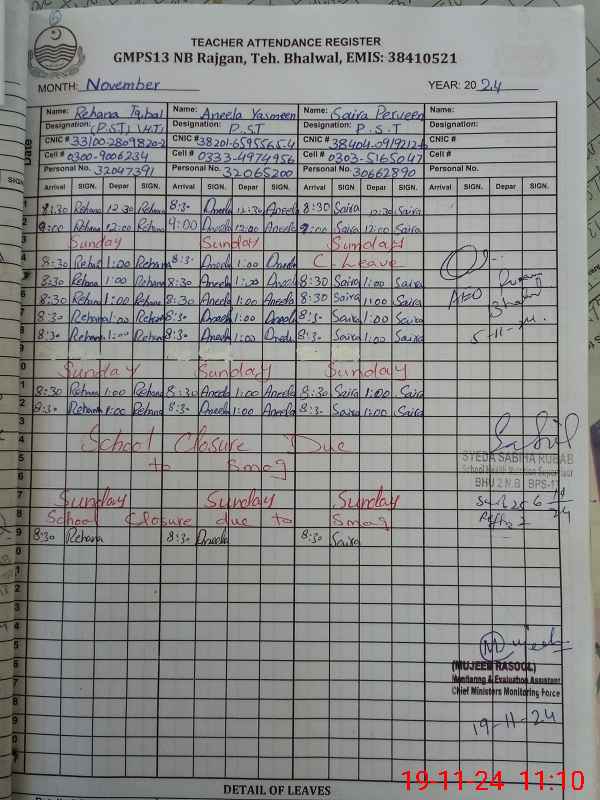 TEACHER ATTENDANCE REGISTER
GMPS13 NB Rajgan, Teh. Bhalwal, EMIS: 38410521
MONTH: November YEAR: 2024
Date
Name: Rehana Iqbal Name: Aneela Yasmeen Name: Saira Perveen Name:
Designation: (P.S.T) (H.T) Designation: P.S.T Designation: P.S.T Designation:
CNIC # 33100-2809820-2 CNIC # 38201-6595565-4 CNIC # 38404-0919212-4 CNIC #
Cell # 0300-9006234 Cell # 0333-4974956 Cell # 0303-5165047 Cell #
Personal No. 32047391 Personal No. 32065200 Personal No. 30662890 Personal No.
Arrival SIGN. Depar SIGN. Arrival SIGN. Depar SIGN. Arrival SIGN. Depar SIGN. Arrival SIGN. Depar SIGN.
1 8:30 Rehana 12:30 Rehana 8:30 Aneela 12:30 Aneela 8:30 Saira 12:30 Saira
2 9:00 Rehana 12:00 Rehana 9:00 Aneela 12:00 Aneela 9:00 Saira 12:00 Saira
3 Sunday Sunday Sunday
4 8:30 Rehana 1:00 Rehana 8:30 Aneela 1:00 Aneela C-Leave
8:30 Rehana 1:00 Rehana 8:30 Aneela 1:00 Aneela 8:30 Saira 1:00 Saira
6 8:30 Rehana 1:00 Rehana 8:30 Aneela 1:00 Aneela 8:30 Saira 1:00 Saira
7 8:30 Rehana 1:00 Rehana 8:30 Aneela 1:00 Aneela 8:30 Saira 1:00 Saira
8 8:30 Rehana 1:00 Rehana 8:30 Aneela 1:00 Aneela 8:30 Saira 1:00 Saira
AEO
5-11-24
9
0 Sunday Sunday Sunday
1 8:30 Rehana 1:00 Rehana 8:30 Aneela 1:00 Aneela 8:30 Saira 1:00 Saira
2 8:30 Rehana 1:00 Rehana 8:30 Aneela 1:00 Aneela 8:30 Saira 1:00 Saira
School Closure Due
to Smog
SYEDA SABIHA RUBAB
School Health Nutrition Supervisor
BHU 2 N.B BPS-17
7 Sunday Sunday Sunday
8 School Closure due to Smog
9 8:30 Rehana 8:30 Aneela 8:30 Saira
Mujeeb
(MUJEEB RASOOL)
Monitoring & Evaluation Assistant
Chief Ministers Monitoring Force
19-11-24
DETAIL OF LEAVES
19-11-24 11:10